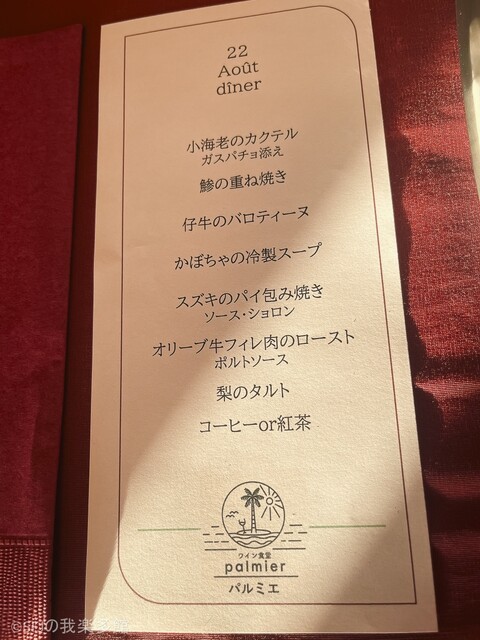 22
Août
dîner
小海老のカクテル
ガスパチョ添え
鯵の重ね焼き
仔牛のバロティーヌ
かぼちゃの冷製スープ
スズキのパイ包み焼き
ソース・ショロン
オリーブ牛フィレ肉のロースト
ポルトソース
梨のタルト
コーヒーor紅茶
ワイン食堂
palmier
パルミエ
の我楽